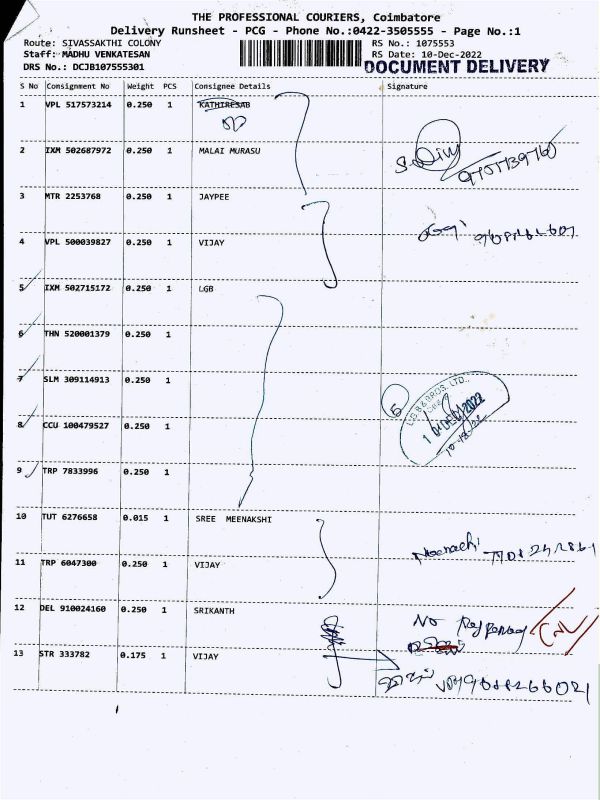 THE PROFESSIONAL COURIERS, Coimbatore
Delivery Runsheet - PCG - Phone No.:0422-3505555 - Page No.:1
Route: SIVASSAKTHI COLONY RS No.: 1075553
Staff: MADHU VENKATESAN RS Date: 10-Dec-2022
DRS No.: DCJB107555301 DOCUMENT DELIVERY
S No Consignment No Weight PCS Consignee Details Signature
1 VPL 517573214 0.250 1 KATHIRESAB
2 IXM 502687972 0.250 1 MALAI MURASU
3 MTR 2253768 0.250 1 JAYPEE
4 VPL 500039827 0.250 1 VIJAY
5 IXM 502715172 0.250 1 LGB
6 THN 520001379 0.250 1
7 SLM 309114913 0.250 1
5 L.G.B & BROS. LTD.,
10 DEC 2022
8 CCU 100479527 0.250 1
9 TRP 7833996 0.250 1
10 TUT 6276658 0.015 1 SREE MEENAKSHI
11 TRP 6047300 0.250 1 VIJAY
12 DEL 910024160 0.250 1 SRIKANTH
No
13 STR 333782 0.175 1 VIJAY